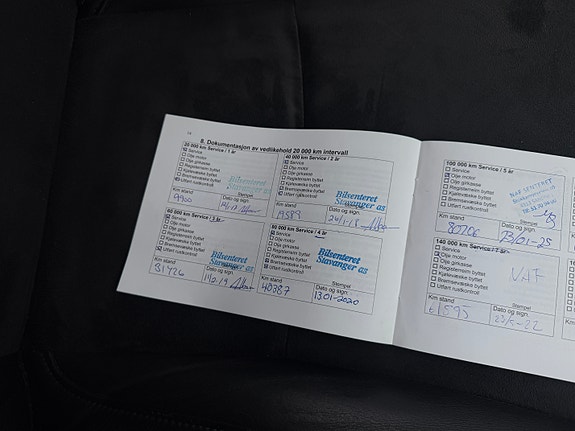 8. Dokumentasjon av vedlikehold 20 000 km intervall
20 000 km Service / 1 år
Service
Olje motor
Olje girkasse
Registerreim byttet
Kjølevæske byttet
Bremsevæske byttet
Utført rustkontroll
Stempel
Km stand
Dato og sign.
9900
40 000 km Service / 2 år
Service
Olje motor
Olje girkasse
Registerreim byttet
Kjølevæske byttet
Bremsevæske byttet
Utført rustkontroll
Bilsenteret
Stavanger as
Stempel
Km stand
Dato og sign.
19589
24/1-18
60 000 km Service / 3 år
Service
Olje motor
Olje girkasse
Registerreim byttet
Kjølevæske byttet
Bremsevæske byttet
Utført rustkontroll
Bilsenteret
Stavanger as
Stempel
Km stand
Dato og sign.
31426
80 000 km Service / 4 år
Service
Olje motor
Olje girkasse
Registerreim byttet
Kjølevæske byttet
Bremsevæske byttet
Utført rustkontroll
Bilsenteret
Stavanger as
Stempel
Km stand
Dato og sign.
40387
13.01-2020
100 000 km Service / 5 år
Service
Olje motor
Olje girkasse
Registerreim byttet
Kjølevæske byttet
Bremsevæske byttet
Utført rustkontroll
Stempel
Km stand
Dato og sign.
80706
23/01-25
140 000 km Service / 7 år
Service
Olje motor
Olje girkasse
Registerreim byttet
Kjølevæske byttet
Bremsevæske byttet
Utført rustkontroll
VAF
Stempel
Km stand
Dato og sign.
61595
23/5-22